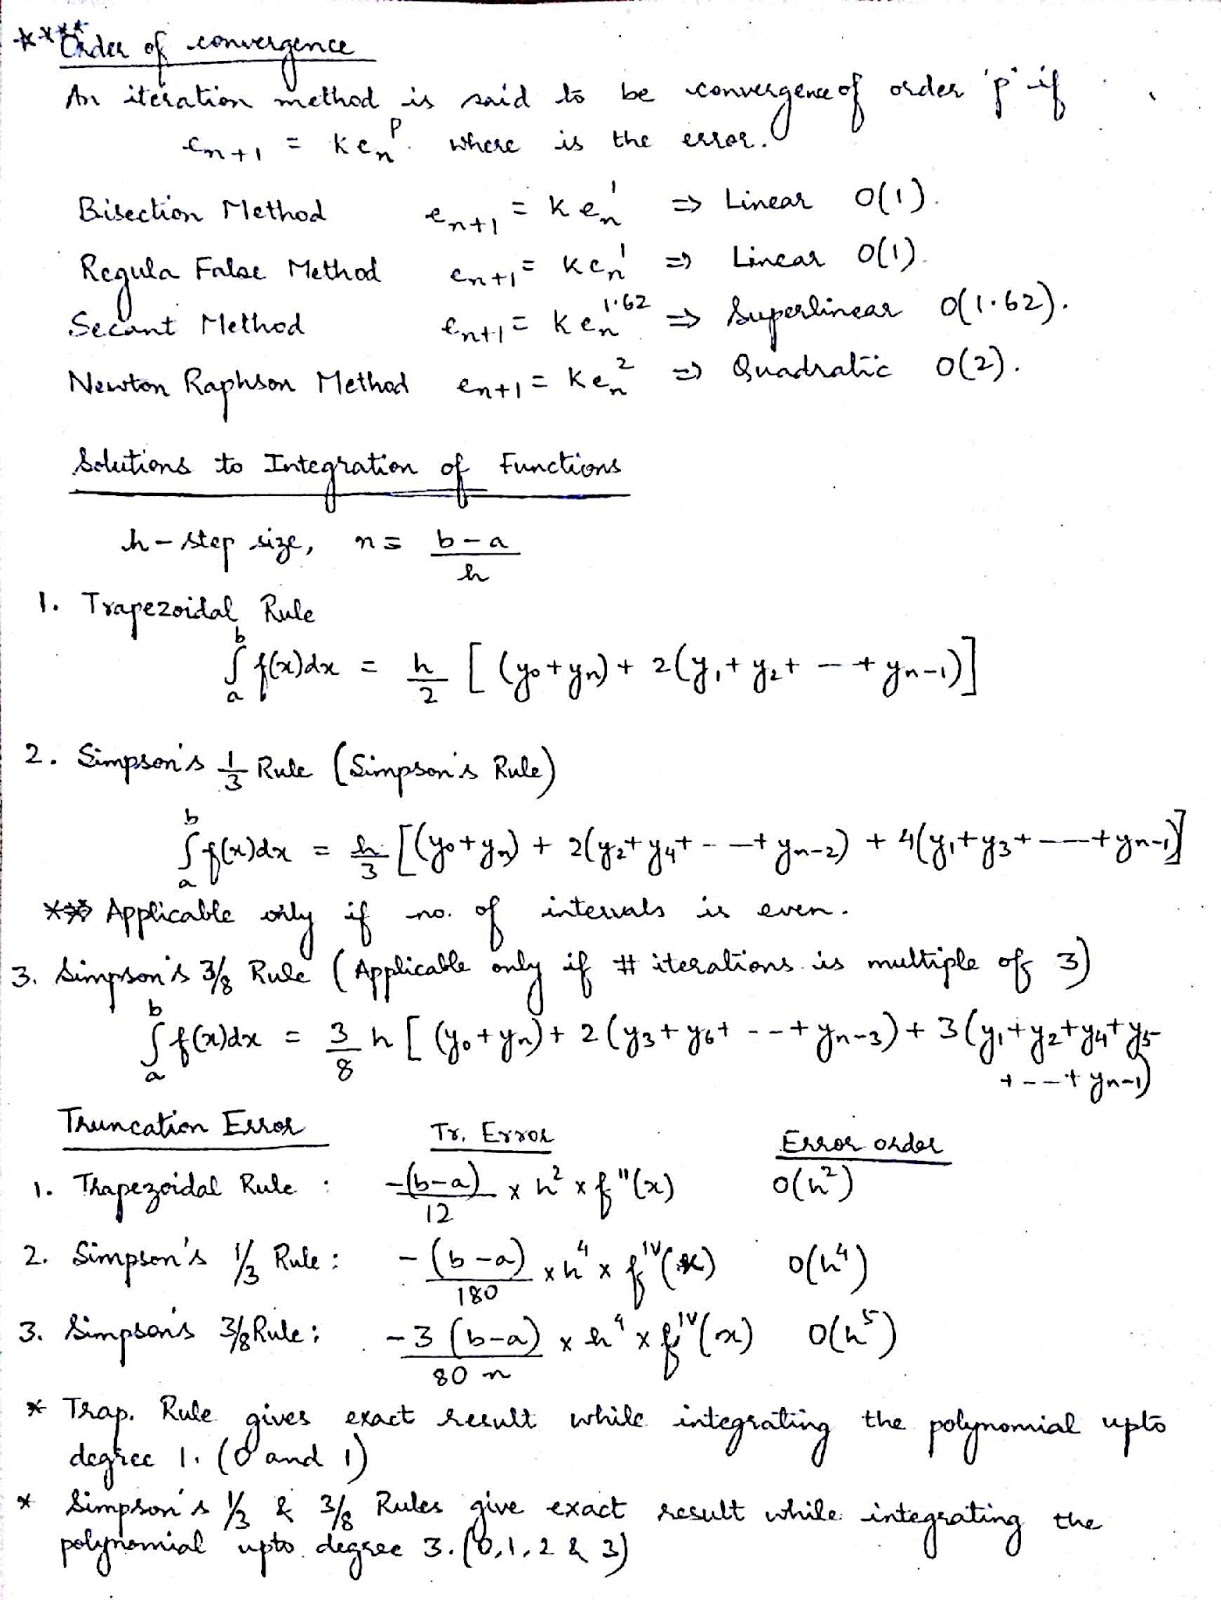 **** Order of convergence
An iteration method is said to be convergence of order 'p' if
e_{n+1} = k e_n^p. where is the error.
Bisection Method e_{n+1} = k e_n^1 ⇒ Linear O(1).
Regula False Method e_{n+1} = k e_n^1 ⇒ Linear O(1).
Secant Method e_{n+1} = k e_n^{1.62} ⇒ Superlinear O(1.62).
Newton Raphson Method e_{n+1} = k e_n^2 ⇒ Quadratic O(2).
Solutions to Integration of Functions
h - step size, n = (b-a)/h
1. Trapezoidal Rule
∫_a^b f(x)dx = h/2 [(y_0+y_n) + 2(y_1+y_2+ --+ y_{n-1})]
2. Simpson's 1/3 Rule (Simpson's Rule)
∫_a^b f(x)dx = h/3 [(y_0+y_n) + 2(y_2+y_4+ - -+ y_{n-2}) + 4(y_1+y_3+ ---+ y_{n-1})]
*** Applicable only if no. of intervals is even.
3. Simpson's 3/8 Rule (Applicable only if # iterations is multiple of 3)
∫_a^b f(x)dx = 3/8 h [(y_0+y_n) + 2(y_3+y_6+ --+ y_{n-3}) + 3(y_1+y_2+y_4+y_5
+ --+ y_{n-1})
Truncation Error Tr. Error Error order
1. Trapezoidal Rule : -(b-a)/12 × h^2 × f''(x) O(h^2)
2. Simpson's 1/3 Rule : -(b-a)/180 × h^4 × f^{IV}(x) O(h^4)
3. Simpson's 3/8 Rule : -3(b-a)/80n × h^4 × f^{IV}(x) O(h^5)
* Trap. Rule gives exact result while integrating the polynomial upto
degree 1. (0 and 1)
* Simpson's 1/3 & 3/8 Rules give exact result while integrating the
polynomial upto degree 3. (0,1,2 & 3)